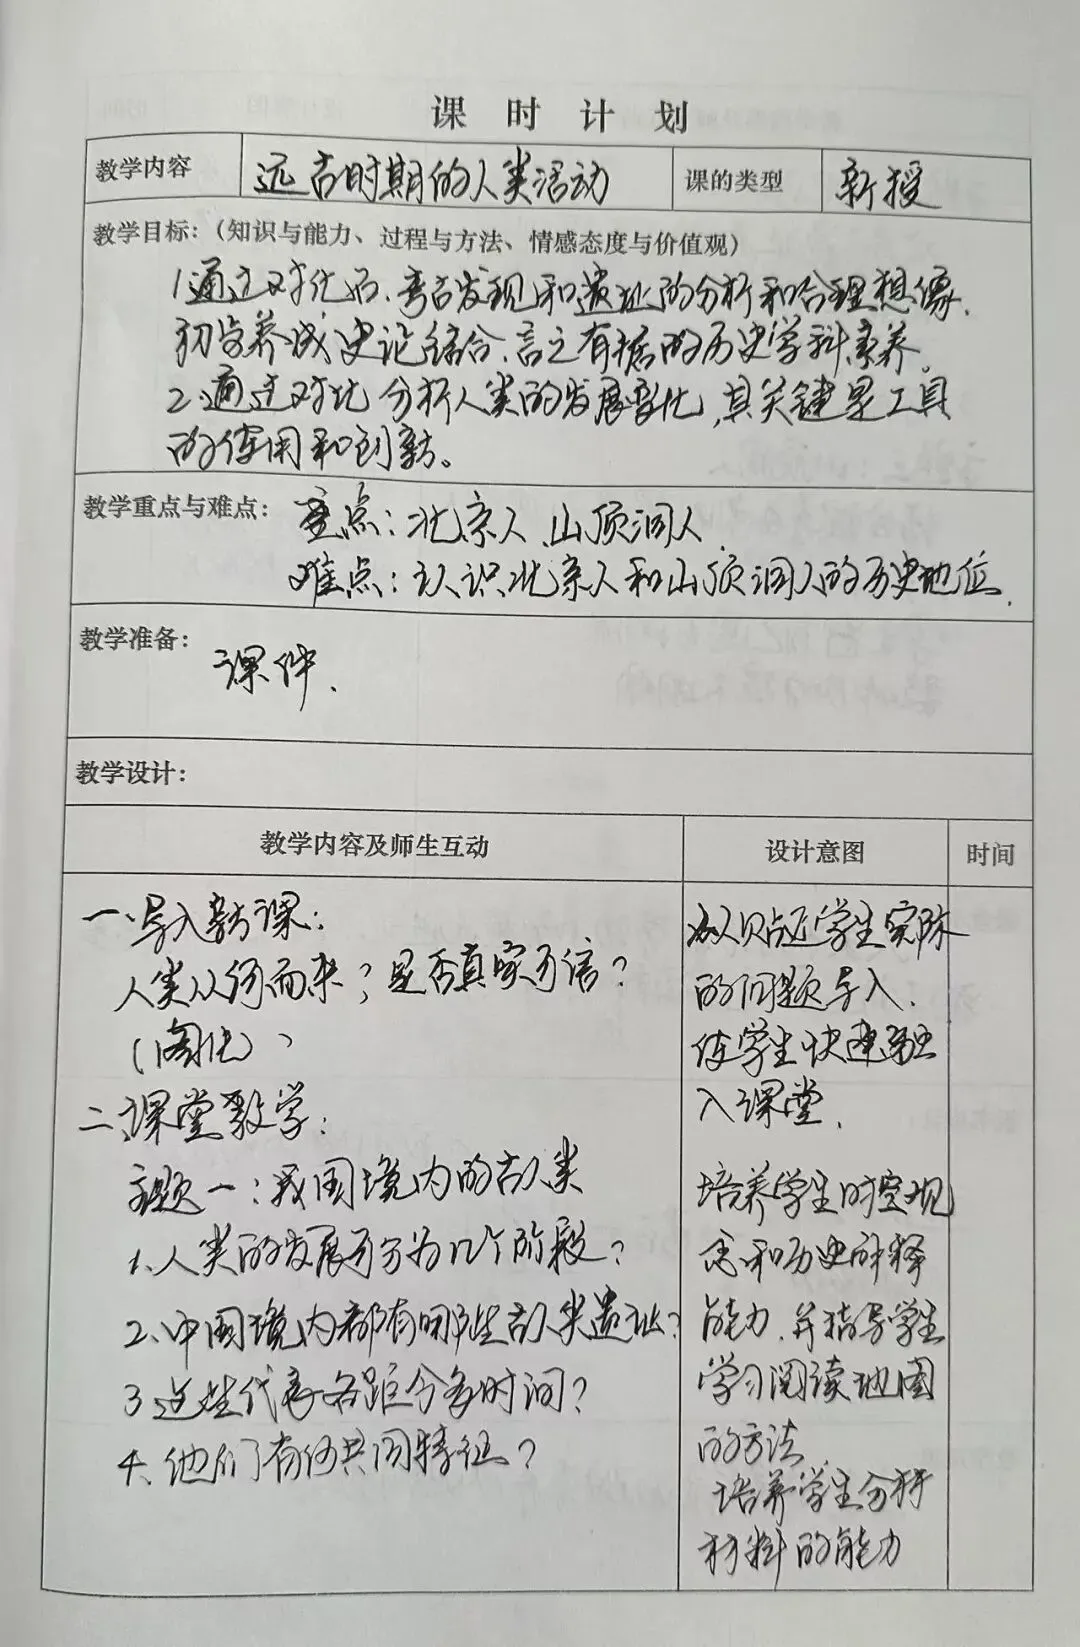 课时计划
教学内容 远古时期的人类活动 课的类型 新授
教学目标：（知识与能力、过程与方法、情感态度与价值观）
1.通过对化石、考古发现和遗址的分析和合理想像，
初步养成史论结合、言之有据的历史学科素养。
2.通过对比分析人类的发展变化，其关键是工具
的使用和创新。
教学重点与难点： 重点：北京人、山顶洞人
难点：认识北京人和山顶洞人的历史地位.
教学准备：
课件.
教学设计：
教学内容及师生互动 设计意图 时间
一、导入新课：
人类从何而来？是否真实可信？
二、课堂教学：
主题一：我国境内的古人类
1.人类的发展可分为几个阶段？
2.中国境内都有哪些古人类遗址？
3.这些代表各距今多时间？
4.他们有何共同特征？
学生实际
的问题导入.
使学生快速融
入课堂.
培养学生时空观
念和历史解释
能力.并指导学生
学习阅读地图
的方法
培养学生分析
材料的能力